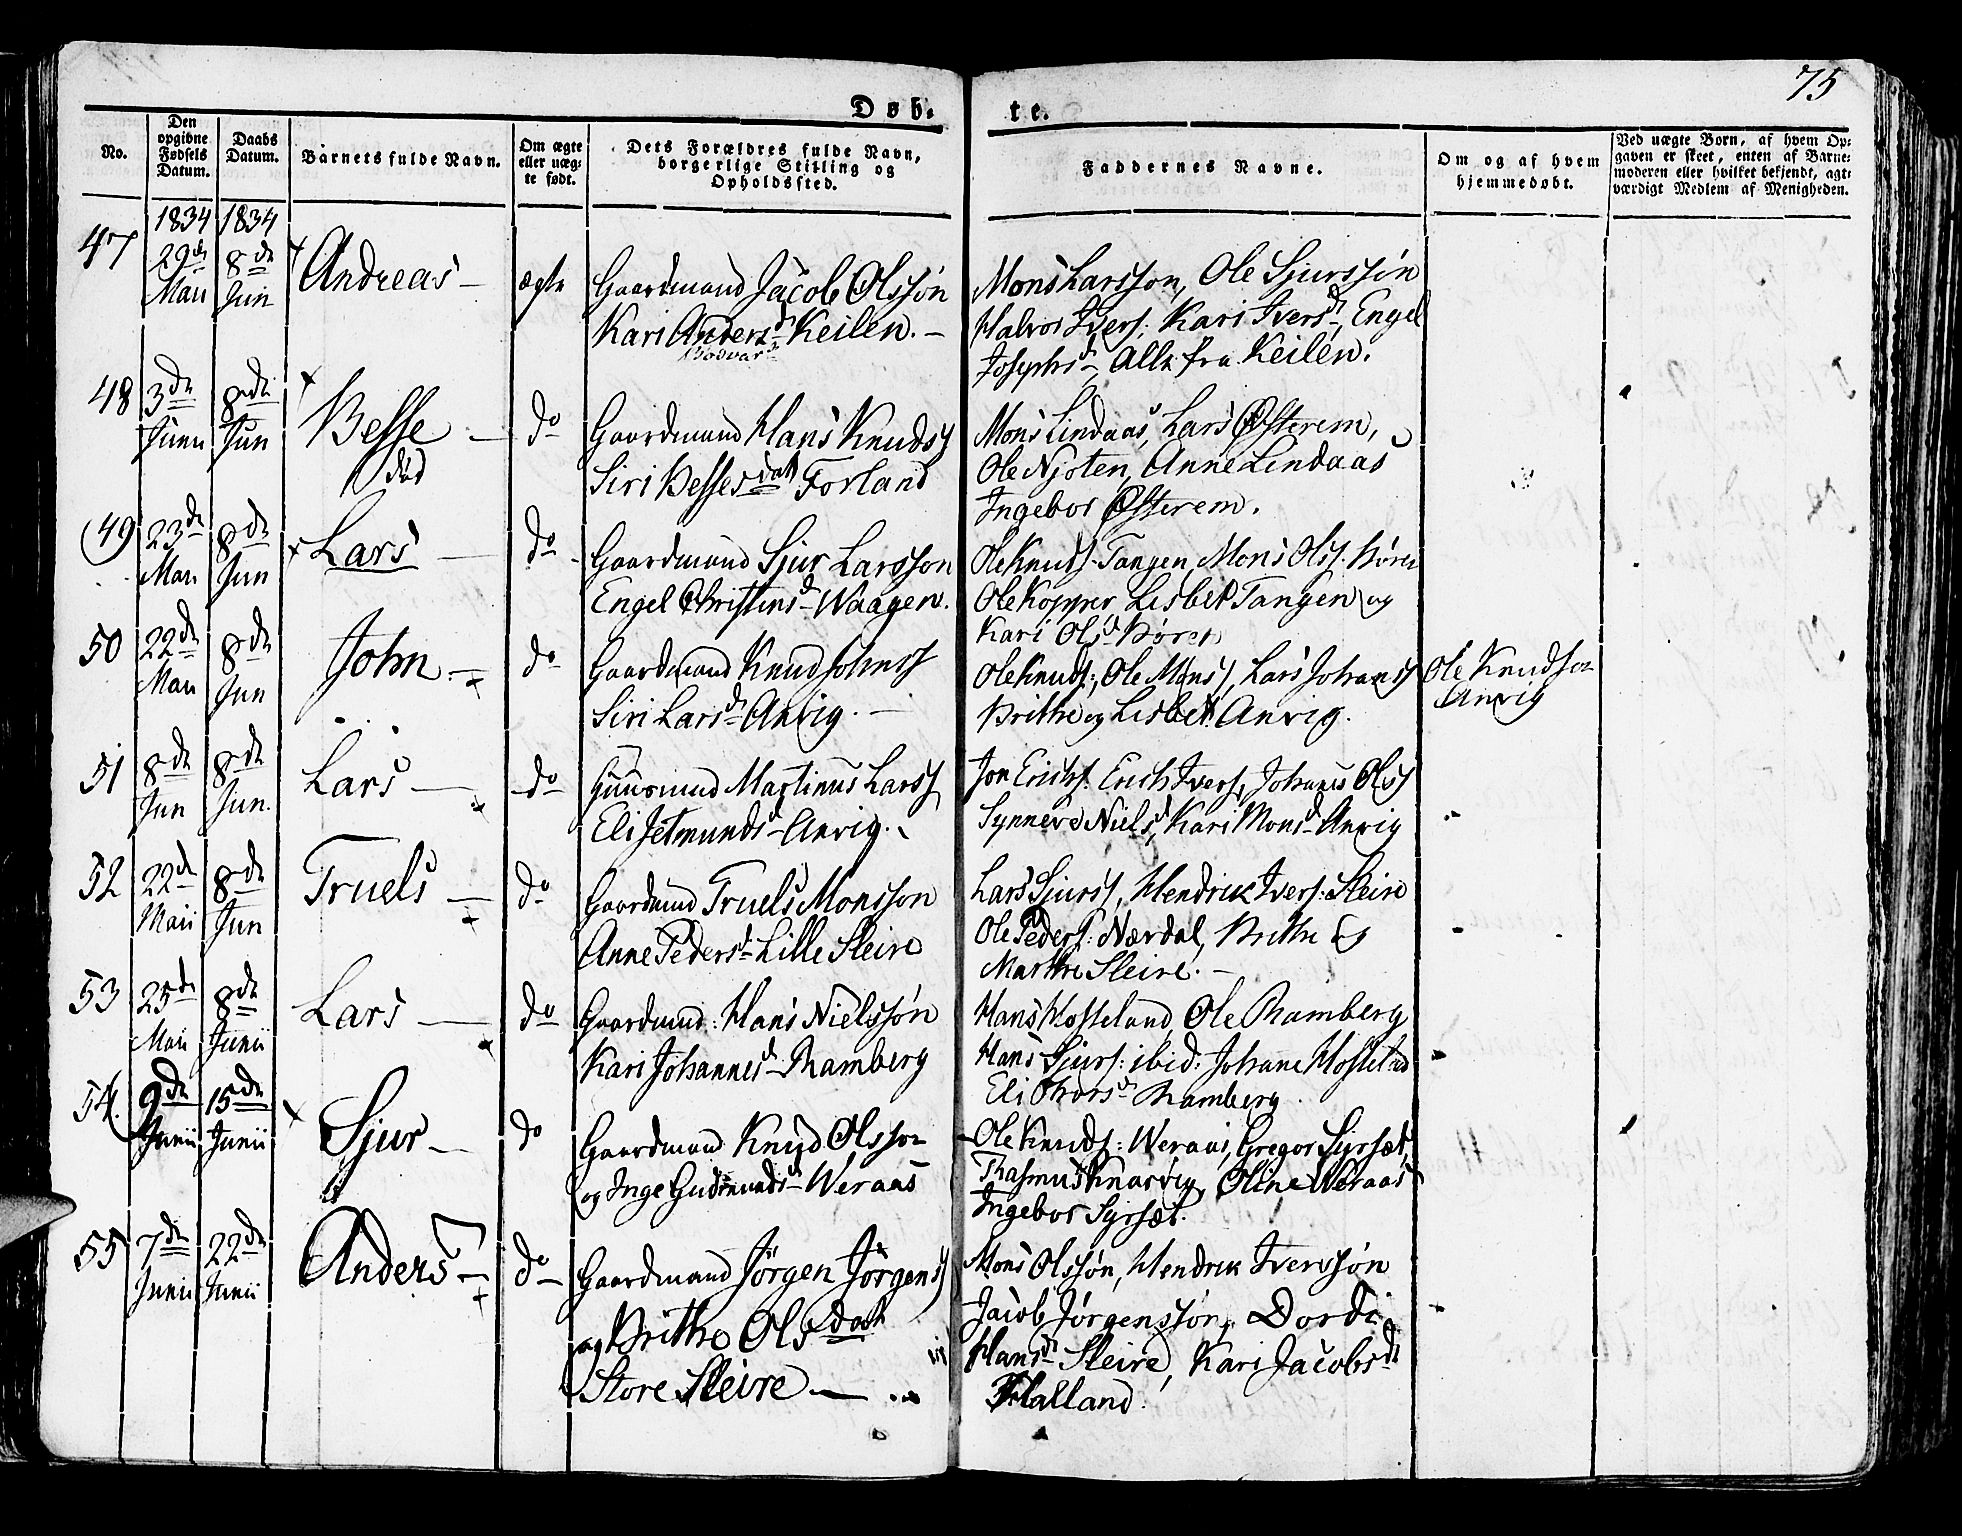 75
Døb.
te.
No.
Den
opgivne
Fødsels
Datum.
Daabs
Datum.
Barnets fulde Navn.
Om ægte
eller uæg-
te født.
Dets Forældres fulde Navn,
borgerlige Stilling og
Opholdssted.
Faddernes Navne.
Om og af hvem
hjemmedøbt.
Ved uægte Børn, af hvem Op-
gaven er skeet, enten af Barne-
moderen eller hvilket bekjendt, agt-
værdigt Medlem af Menigheden.
1834 1834
47 29de Maii 8de Jun Andreas - ægte
Gaardmand Jacob Olssøn
Kari Andersd Keilen. -
Bodvar
Mons Larsson, Ole Sjurssøn
Halvor Ivers: Kari Iversd, Engel
Josephsd, Alle fra Keilen.
48 3de Junii 8de Jun Besse - do
død
Gaardmand Hans Knuds
Siri Bessesdatt Forland
Mons Lindaas, Lars Østerem,
Ole Njøten, Anne Lindaas
Ingebor Østerem.
49 23de Maii 8de Jun Lars - do
Gaardmand Sjur Larsson
Engel Christensd Waagen.
Ole Knuds. Tangen, Mons Olss.
Ole Kopper Lisbet Tangen og
Kari Olsd
50 22de Maii 8de Jun John - do
Gaardmand Knud Johnss
Siri Larsd Anvig. -
Ole Knuds:, Ole Monss, Lars Johanss
Brithe og Lisbet Anvig.
Ole Knudson
Anvig
51 8de Jun 8de Jun. Lars - do
Martinus Larss
Eli Jetmundsd Anvig.
Jon Erichs. Erich Ivers, Johanes Olss
Synneve Nielsd, Kari Monsd Anvig
52 22de Maii 8de Jun Truels - do
Gaardmand Truels Monsson
Anne Pedersd Lille Sleire
Lars Sjurss, Hendrik Ivers. Sleire
Ole Peders: Nærdal, Brithe og
Marthe Sleire. -
53 25de Maii 8de Junii Lars - do
Gaardmand: Hans Nielssøn
Kari Johannesd Ramberg
Hans Hosteland Ole Ramberg
Hans Sjurs: ibid: Johane Hosteland
Eli Thorsd Ramberg
54. 9de Junii 15de Junii Sjur - do
Gaardmand Knud Olsson
og Inge Gudmundsd Weraas
Ole Knuds: Weraas, Gregor Syrsæt,
Rasmus Knarvig, Oline Weraas
Ingebor Syrsæt.
55 7de Junii 22de Junii Anders - do
Gaardmand Jørgen Jørgens
og Brithe Olsdatt
Store Sleire -
Mons Olssøn, Hendrik Iverssøn
Jacob Jørgenssøn, Dordi
Hansd Sleire, Kari Jacobsd
Halland